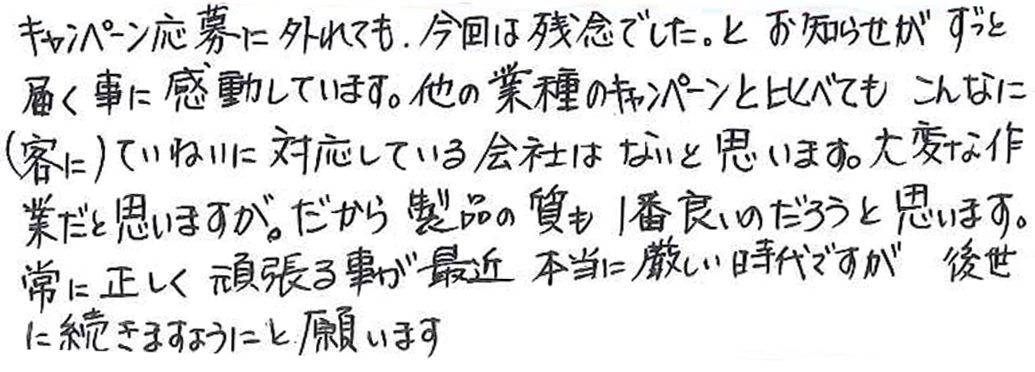 キャンペーン応募に外れても、今回は残念でした。と お知らせが ずっと
届く事に感動しています。他の業種のキャンペーンと比べても こんなに
(客に)ていねいに対応している会社は ないと思います。大変な作
業だと思いますが。だから 製品の質も 1番良いのだろうと思います。
常に正しく 頑張る事が最近 本当に厳しい時代ですが 後世
に続きますようにと願います